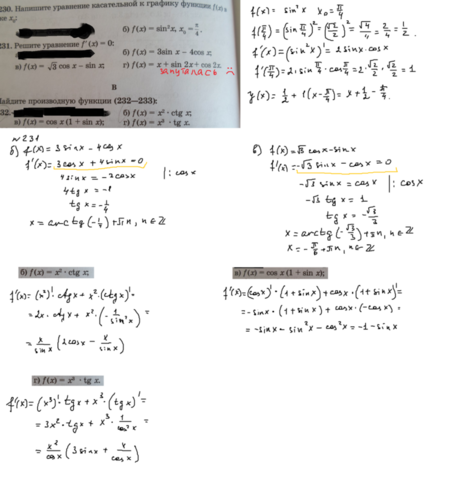 230. Напишите уравнение касательной к графику функции f(x)
б) f(x) = sin²x, x₀ = π/4.
231. Решите уравнение f'(x) = 0:
б) f(x) = 3sin x − 4cos x;
в) f(x) = √3 cos x − sin x;
г) f(x) = x + sin 2x + cos 2x.
запуталась :(
В
Найдите производную функции (232—233):
32.
б) f(x) = x² · ctg x;
в) f(x) = cos x (1 + sin x);
г) f(x) = x³ · tg x.
f(x) = sin²x x₀ = π/4
f(π/4) = (sin π/4)² = (√2/2)² = √4/4 = 2/4 = 1/2.
f'(x) = (sin²x)' = 2sinx·cosx
f'(π/4) = 2·sin π/4 · cos π/4 = 2·√2/2·√2/2 = 1
y(x) = 1/2 + 1(x − π/4) = x + 1/2 − π/4.
№231
б) f(x) = 3sinx − 4cosx
f'(x) = 3cosx + 4sinx = 0
4sinx = −3cosx |: cosx
4tgx = −1
tgx = −1/4
x = arctg(−1/4) + πn, n∈Z
в) f(x) = √3 cosx − sinx
f'(x) = −√3 sinx − cosx = 0
−√3 sinx = cosx |: cosx
−√3 tgx = 1
tgx = −√3/3
x = arctg(−√3/3) + πn, n∈Z
x = −π/6 + πn, n∈Z
б) f(x) = x² · ctg x;
f'(x) = (x²)'·ctgx + x²·(ctgx)' =
= 2x·ctgx + x²·(−1/sin²x) =
= x/sinx (2cosx − x/sinx)
в) f(x) = cos x (1 + sin x);
f'(x) = (cosx)'·(1+sinx) + cosx·(1+sinx)' =
= −sinx·(1+sinx) + cosx·(−cosx) =
= −sinx − sin²x − cos²x = −1 − sinx
г) f(x) = x³ · tg x.
f'(x) = (x³)'·tgx + x³·(tgx)' =
= 3x²·tgx + x³·1/cos²x =
= x²/cosx (3sinx + x/cosx)